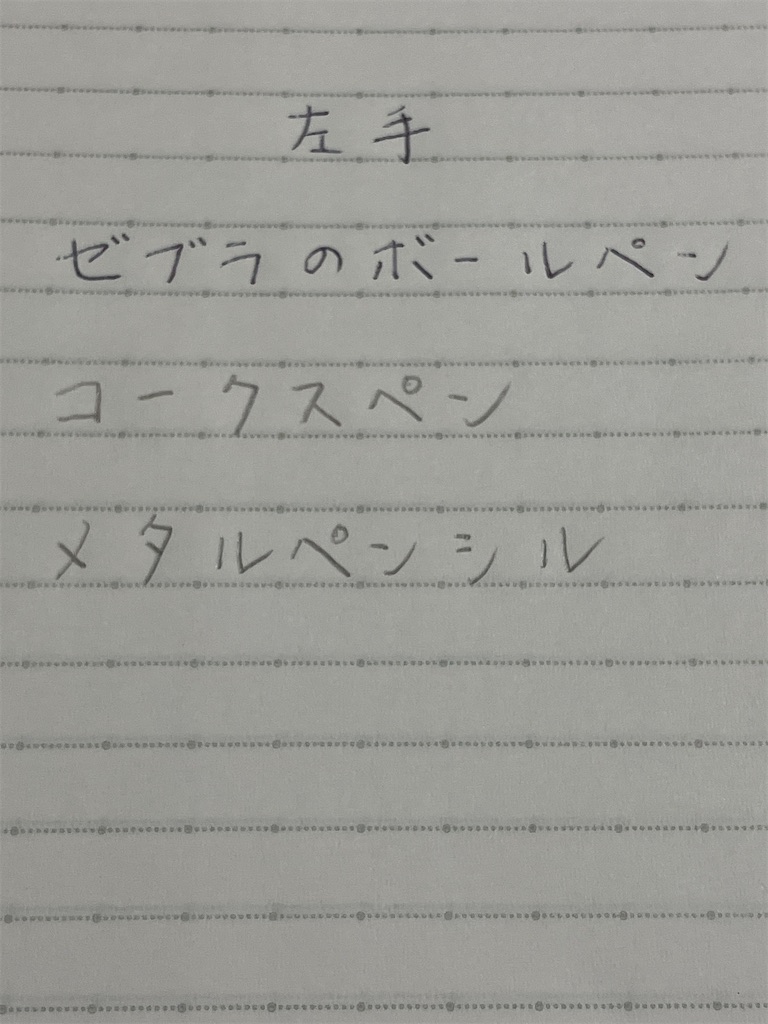 左手
ゼブラのボールペン
コークスペン
メタルペンシル